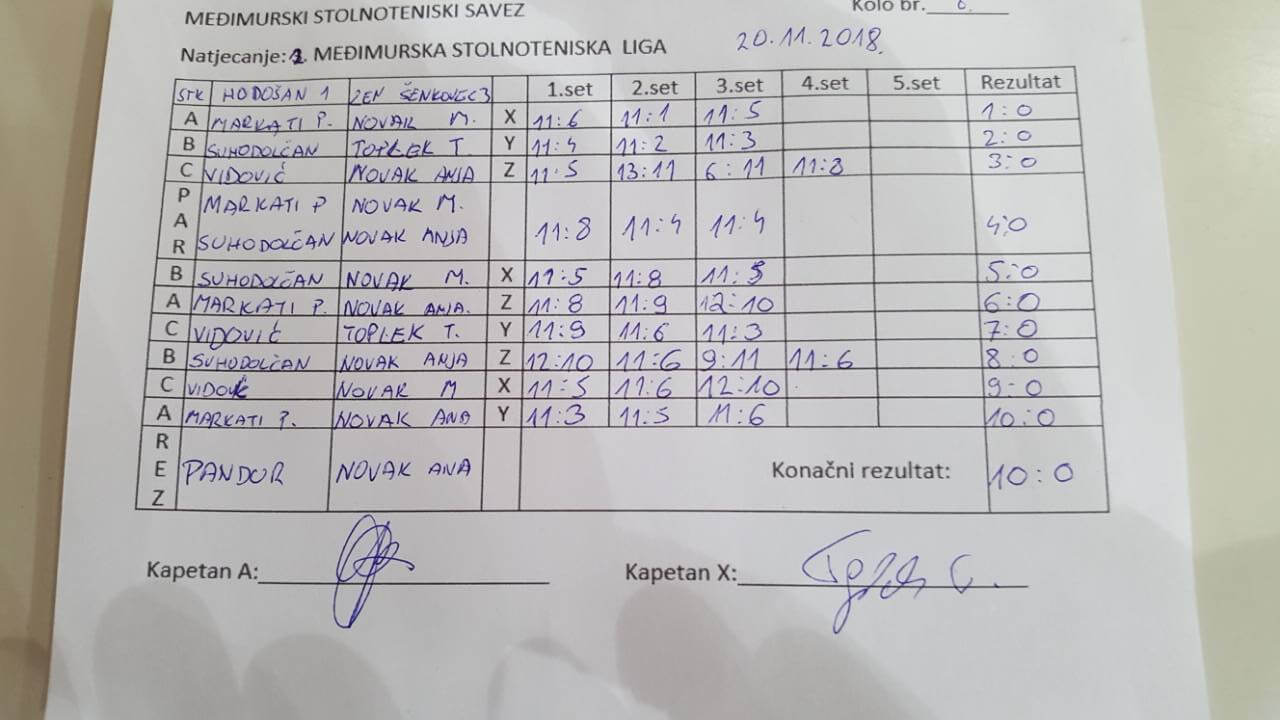 MEĐIMURSKI STOLNOTENISKI SAVEZ
Kolo br.
Natjecanje: 2. MEĐIMURSKA STOLNOTENISKA LIGA 20.11.2018.
STK HODOŠAN 1 ZEN ŠENKOVEC 3 1.set 2.set 3.set 4.set 5.set Rezultat
A MARKATI P. NOVAK M. X 11:6 11:1 11:5 1:0
B SUHODOLČAN TOPLEK T. Y 11:4 11:2 11:3 2:0
C VIDOVIĆ NOVAK ANJA Z 11:5 13:11 6:11 11:8 3:0
PAR MARKATI P NOVAK M.
SUHODOLČAN NOVAK ANJA 11:8 11:4 11:4 4:0
B SUHODOLČAN NOVAK M. X 11:5 11:8 11:5 5:0
A MARKATI P. NOVAK ANJA. Z 11:8 11:9 12:10 6:0
C VIDOVIĆ TOPLEK T. Y 11:9 11:6 11:3 7:0
B SUHODOLČAN NOVAK ANJA Z 12:10 11:6 9:11 11:6 8:0
C VIDOVIĆ NOVAK M X 11:5 11:6 12:10 9:0
A MARKATI P. NOVAK ANA Y 11:3 11:5 11:6 10:0
REZ PANDUR NOVAK ANA Konačni rezultat: 10:0
Kapetan A: Kapetan X: